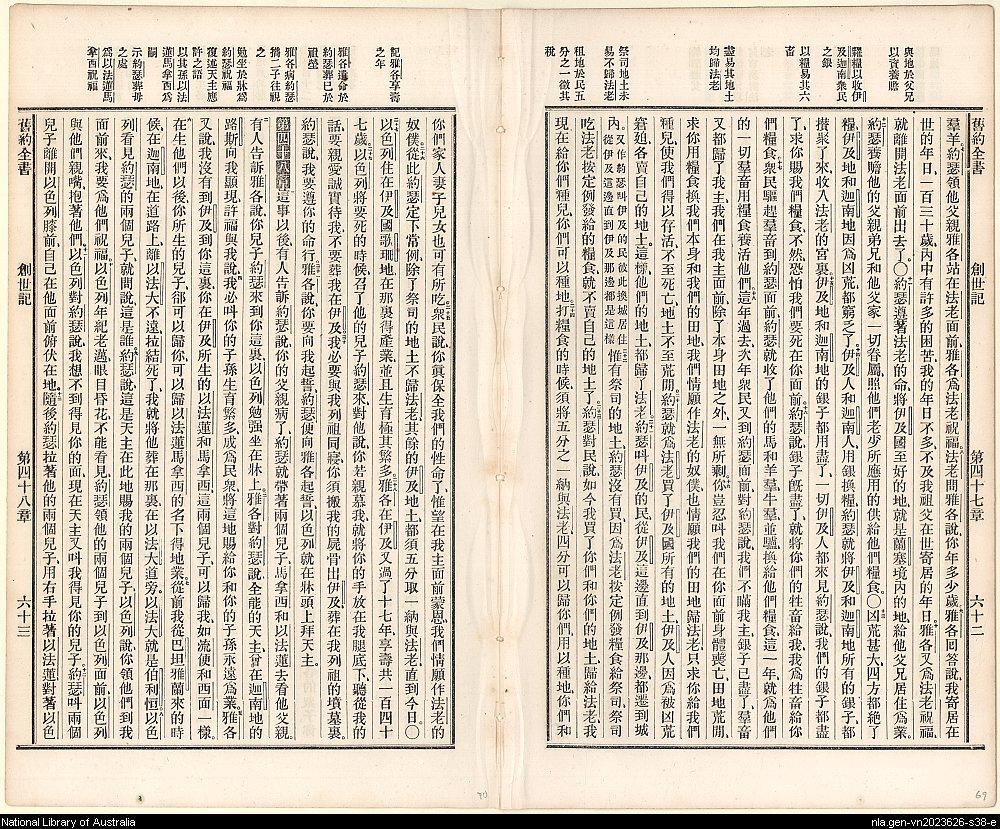 舊約全書 創世記 第四十七章 六十二
與地於父兄
以資養贍
糶糧以收伊
及迦南衆民
之銀
以糧易其六
畜
盡易其地土
均歸法老
祭司地土未
易不歸法老
租地於民五
分之一徵其
稅
羣羊、約瑟領他父親雅各站在法老面前、雅各爲法老祝福、法老問雅各說、你年多少歲、雅各回答說、我寄居在
世的年日、一百三十歲、內中有許多的困苦、我的年日不多、不及我祖父在世寄居的年日。雅各又爲法老祝福、
就離開法老面前出去了。〇約瑟遵著法老的命、將伊及國至好的地、就是蘭塞境內的地、給他父兄居住爲業。
約瑟養贍他的父親弟兄、和他父家一切眷屬、照他們老少所應用的供給他們糧食。〇凶荒甚大、四方都絶了
糧、伊及地和迦南地、因爲凶荒都窮了。伊及人和迦南人、用銀換糧、約瑟就將伊及和迦南地所有的銀子、都
攢聚了來、收入法老的宮裏。伊及地和迦南地的銀子都用盡了、一切伊及人都來見約瑟說、我們的銀子都盡
了、求你賜我們糧食、不然、恐怕我們要死在你面前。約瑟說、銀子旣盡了、就將你們的牲畜給我、我爲牲畜給你
們糧食。衆民驅趕羣畜到約瑟面前、約瑟就收了他們的馬和羊羣牛羣並驢、換給他們糧食、這一年就爲他們
的一切羣畜、用糧食養活他們。這年過去、次年衆民又到約瑟面前、對約瑟說、我們不瞞我主、銀子已盡了、羣畜
又都歸了我主、我們在我主面前、除了本身田地之外、一無所剩。你豈忍叫我們在你面前身體喪亡、田地荒閒、
求你用糧食換我們本身和我們的田地、我們情願作法老的奴僕、也情願我們的田地歸法老、只求你給我們
種兒、使我們得以存活、不至死亡、地土不至荒閒。約瑟就爲法老買了伊及國所有的地土、伊及人因爲被凶荒
窘廹、各賣自己的地土。這樣他們的地土、都歸了法老、約瑟叫伊及的民從伊及這邊直到伊及那邊、都遷到城
內。又作約瑟叫伊及的民彼此換城居住從伊及這邊直到伊及那邊都是這樣惟有祭司的地土、約瑟沒有買、因爲法老按定例發糧食給祭司、祭司
吃法老按定例發給的糧食、就不賣自己的地土了。約瑟對民說、如今我買了你們和你們的地土歸給法老、我
現在給你們種兒、你們可以種地。打糧食的時候、須將五分之一納與法老、四分可以歸你們、用以種地、你們和
記雅各享壽
之年
雅各遺命於
約瑟葬已於
祖塋
雅各病約瑟
攜二子往視
之
勉坐於牀爲
約瑟祝福
復述天主應
許之語
以其孫以法
蓮馬拿西爲
嗣
示約瑟葬母
之處
爲以法蓮馬
拿西祝福
你們家人妻子兒女也可有所吃。衆民說、你眞保全我們的性命了、惟望在我主面前蒙恩、我們情願作法老的
奴僕。從此約瑟定下常例、除了祭司的地土不歸法老、其餘的伊及地土、都須五分取一納與法老、直到今日。〇
以色列住在伊及國歌珊地、在那裏得產業、並且生育極其繁多。雅各在伊及又過了十七年、享壽共一百四十
七歲。以色列將要死的時候、召了他的兒子約瑟來、對他說、你若親慕我、就將你的手放在我腿底下、聽從我的
話、要親愛誠實待我、不要葬我在伊及。我必要與我列祖同寢、你須搬我的屍骨出伊及、葬在我列祖的墳墓裏、
約瑟說、我要遵你的命行。雅各說、你要向我起誓、約瑟便向雅各起誓、以色列就在牀頭上拜天主。
第四十八章這事以後、有人告訴約瑟說、你的父親病了、約瑟就帶著兩個兒子、馬拿西和以法蓮、去看他父親。
有人告訴雅各說、你兒子約瑟來到你這裏、以色列勉强坐在牀上。雅各對約瑟說、全能的天主、曾在迦南地的
路斯向我顯現、許福與我、說、我必叫你的子孫生育繁多、成爲民衆、將這地賜給你和你的子孫永遠爲業。雅各
又說、我沒有到伊及到你這裏、你在伊及所生的以法蓮和馬拿西、這兩個兒子、可以歸我、如流便和西面一樣。
在生他們以後、你所生的兒子、卻可以歸你、可以歸以法蓮馬拿西的名下得地業。從前我從巴坦雅蘭來的時
候、在迦南地、在道路上、離以法大不遠、拉結死了、我就將他葬在那裏、在以法大道旁、以法大就是伯利恒。以色
列看見約瑟的兩個兒子、就問說、這是誰。約瑟說、這是天主在此地賜我的兩個兒子、以色列說、你領他們到我
面前來、我要爲他們祝福。以色列年紀老邁、眼目昏花、不能看見、約瑟領他的兩個兒子到以色列面前、以色列
與他們親嘴、抱著他們。以色列對約瑟說、我想不到得見你的面、現在天主又叫我得見你的兒子。約瑟叫兩個
兒子離開以色列膝前、自己在他面前俯伏在地。隨後約瑟拉著他的兩個兒子、用右手拉著以法蓮、對著以色
舊約全書 創世記 第四十八章 六十三
70
69
National Library of Australia
nla.gen-vn2023626-s38-e